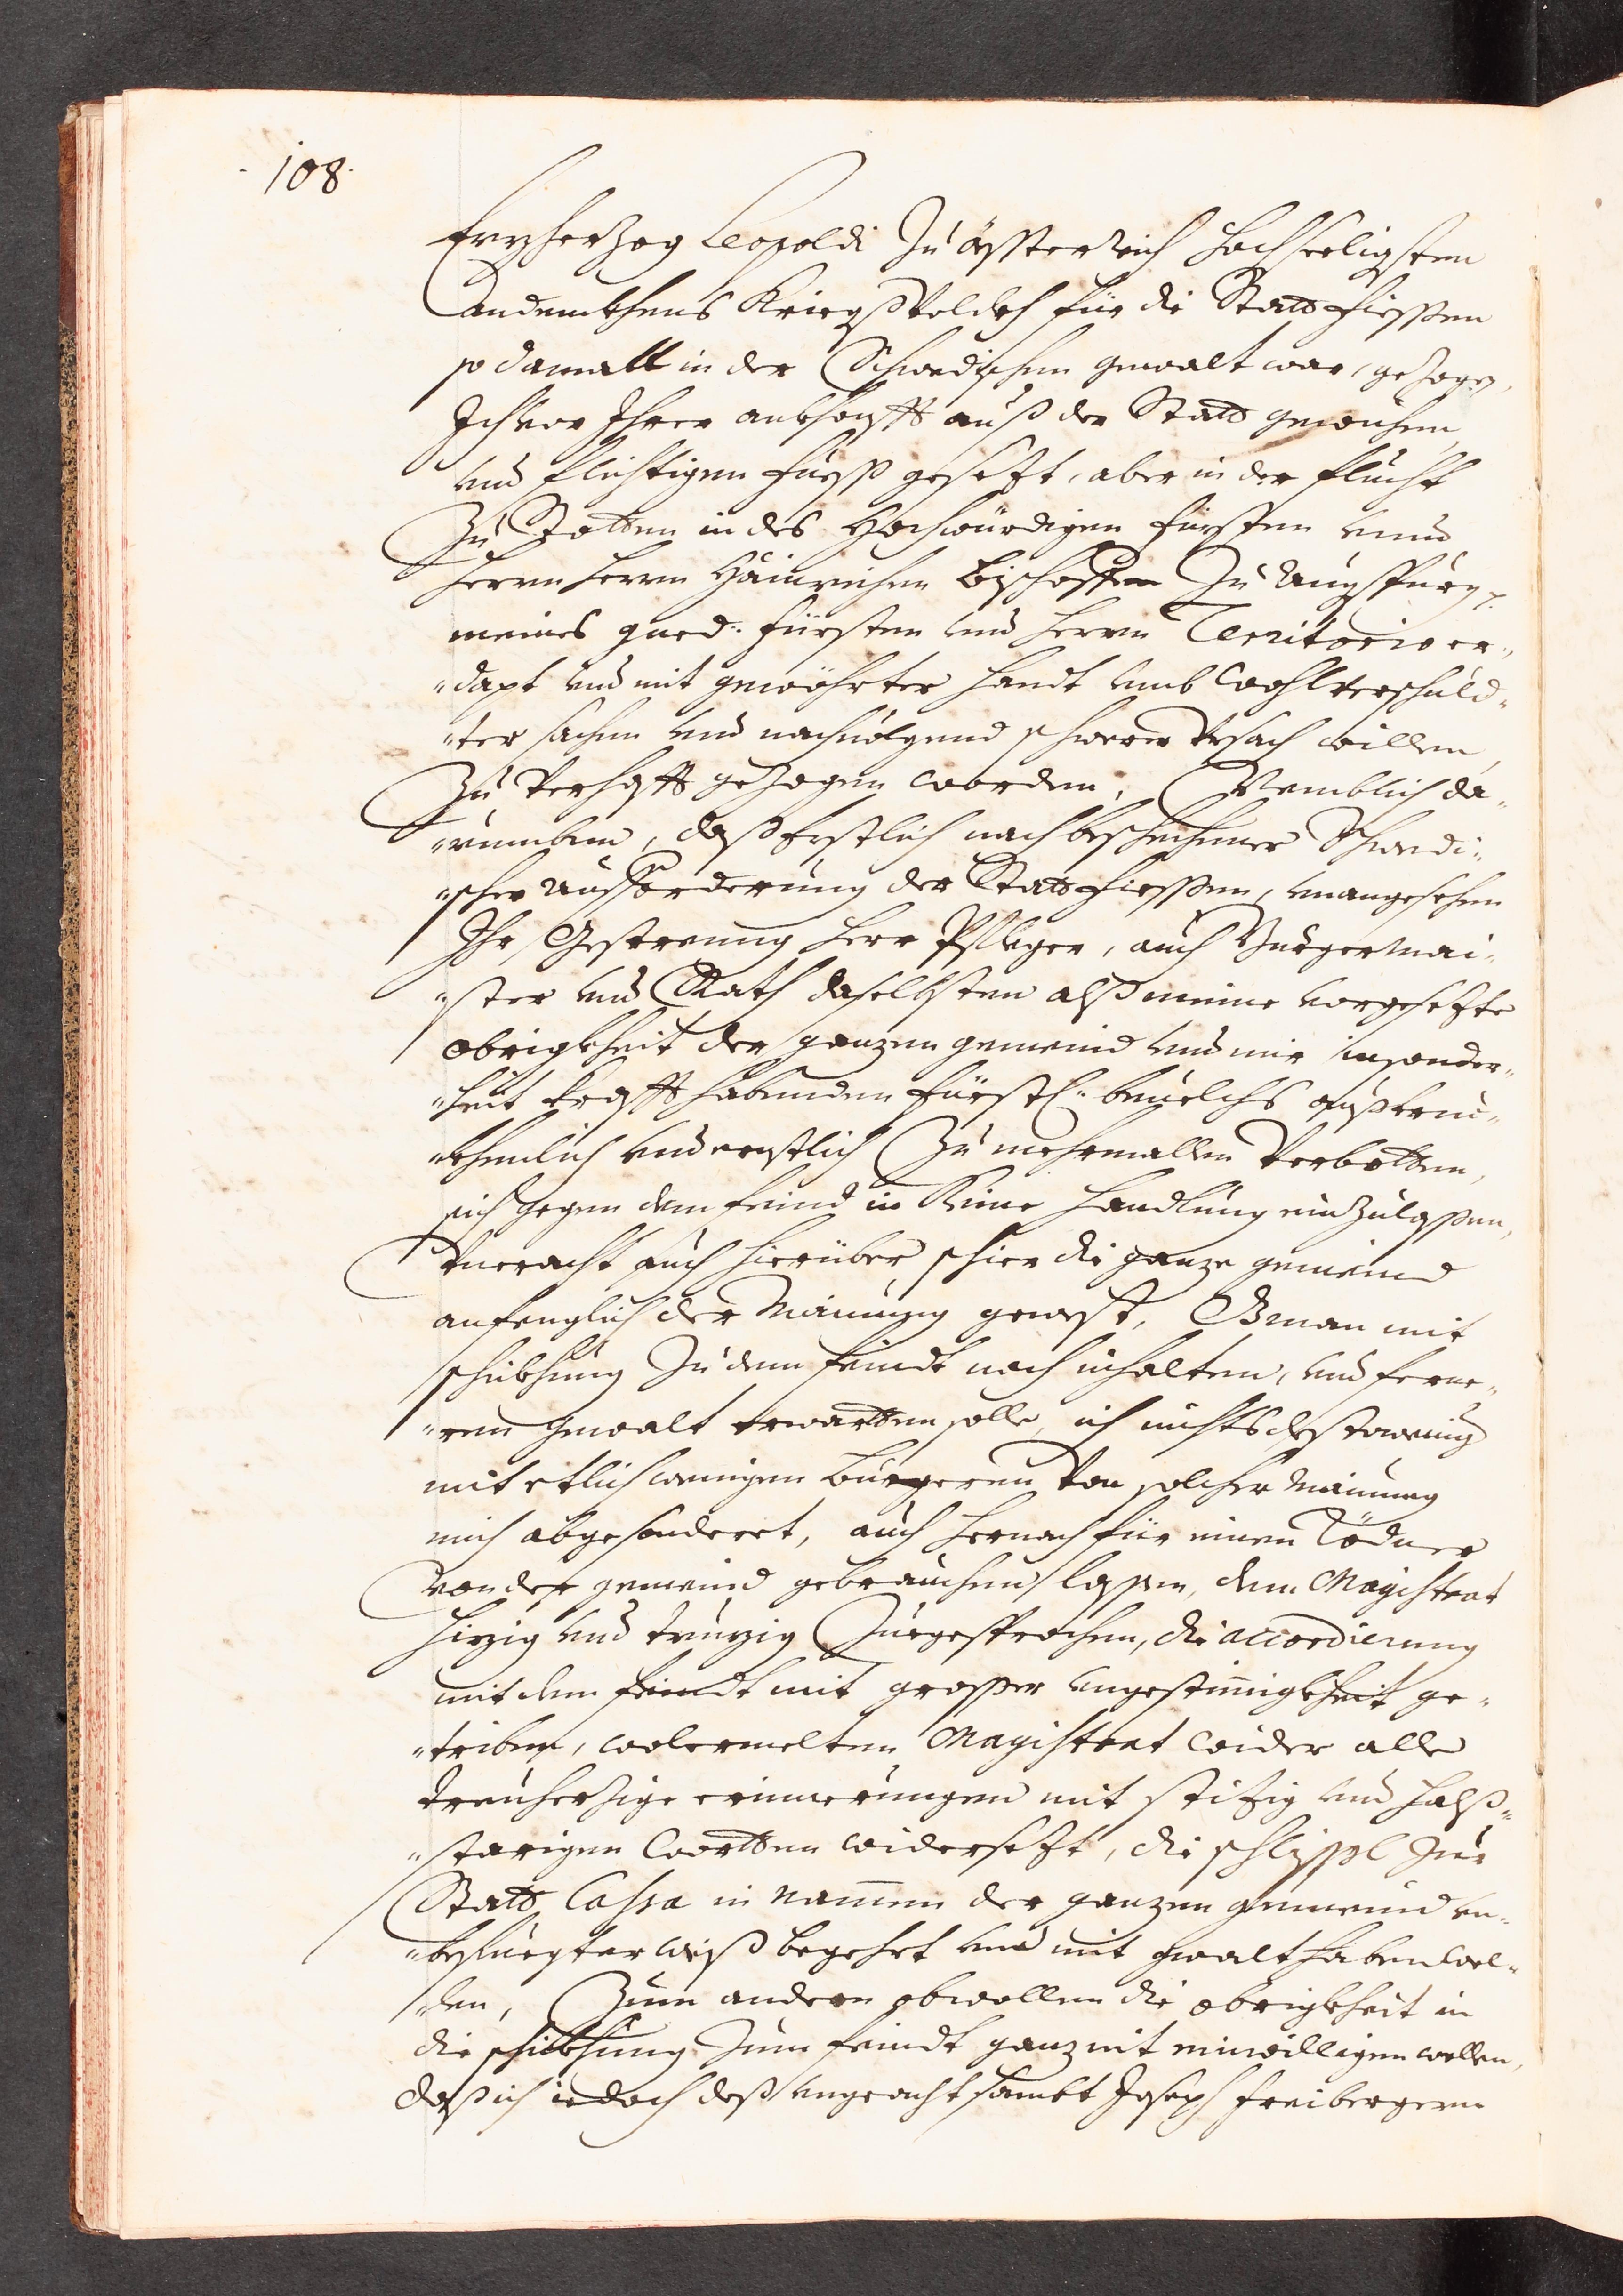 108.
Erzherzog Leopoldi Zu össterreich hochseeligsten
Andenckhens Kriegßvolckh für die Statt Fiessen
so damall in der Schwedischen gewalt war, gezogen,
Ich vor Ihrer ankhonfft auß der Statt gewichen,
und flichtigen Fuess gesetzt, aber in der flucht
Zu Rotten in des Hochwürdigen Fürsten unnd
Herrn Herrn Hainrichen Bischoffen Zu Augspurg p.
meines gned: Fürsten und Herrn Territorio er„
„dapt und mit gewöhrter Handt umb wohlverschuld„
„ter sachen und nachuolgend schwerer Ursach willen,
Zu Verhafft gezogen worden, Nemblich da„
„rumben, daß Erstlich nach beschechener Schwedi„
„scher Aufforderung der Statt Fiessen, unangesehen
Ihr Gestreng Herr Pfleger, auch Burgermai„
„ster und Rath daselbsten alß meine vorgesetzte
Obrigkheit der ganzen gemeind und mir insonder„
„heit krafft habenden Fürstl: beuelchs außtruc„
„khenlich und ernstlich Zu mehrmallen Verbotten,
sich gegen dem Feind in Keine Handlung einzulassen,
Vneracht auch hierüber schier die ganze gemeind
anfenglich der Mainung gewest, Das man mit
schickhung Zu dem Feindt noch inhalten, und ferne„
„ren gewalt erwartten solle, ich nichts destoweniger
mit etlich wenigen Burgeren von solcher Mainung
mich abgesönderet, auch hernach für einen Rödner
von der gemeind gebrauchen lassen, dem Magistrat
hizig und truzig Zuegesprochen, die accordierung
mit dem feindt mit grosser ungestimigkheit ge„
„triben, wolermelten Magistrat wider alle
treuherzige erinnerungen mit stizig und halß„
„starigen wortten widersetzt, die schlissl Zur
Statt Cassa in namen der ganzen gemeind un„
„befuegter weiß begehrt und mit gwalt haben wol„
„len, Zum andern obwollen die obrigkheit in
die schickhung Zum feindt ganz nit einwilligen wollen,
daß ich iedoch deß ungeacht sambt Joseph Freibergern